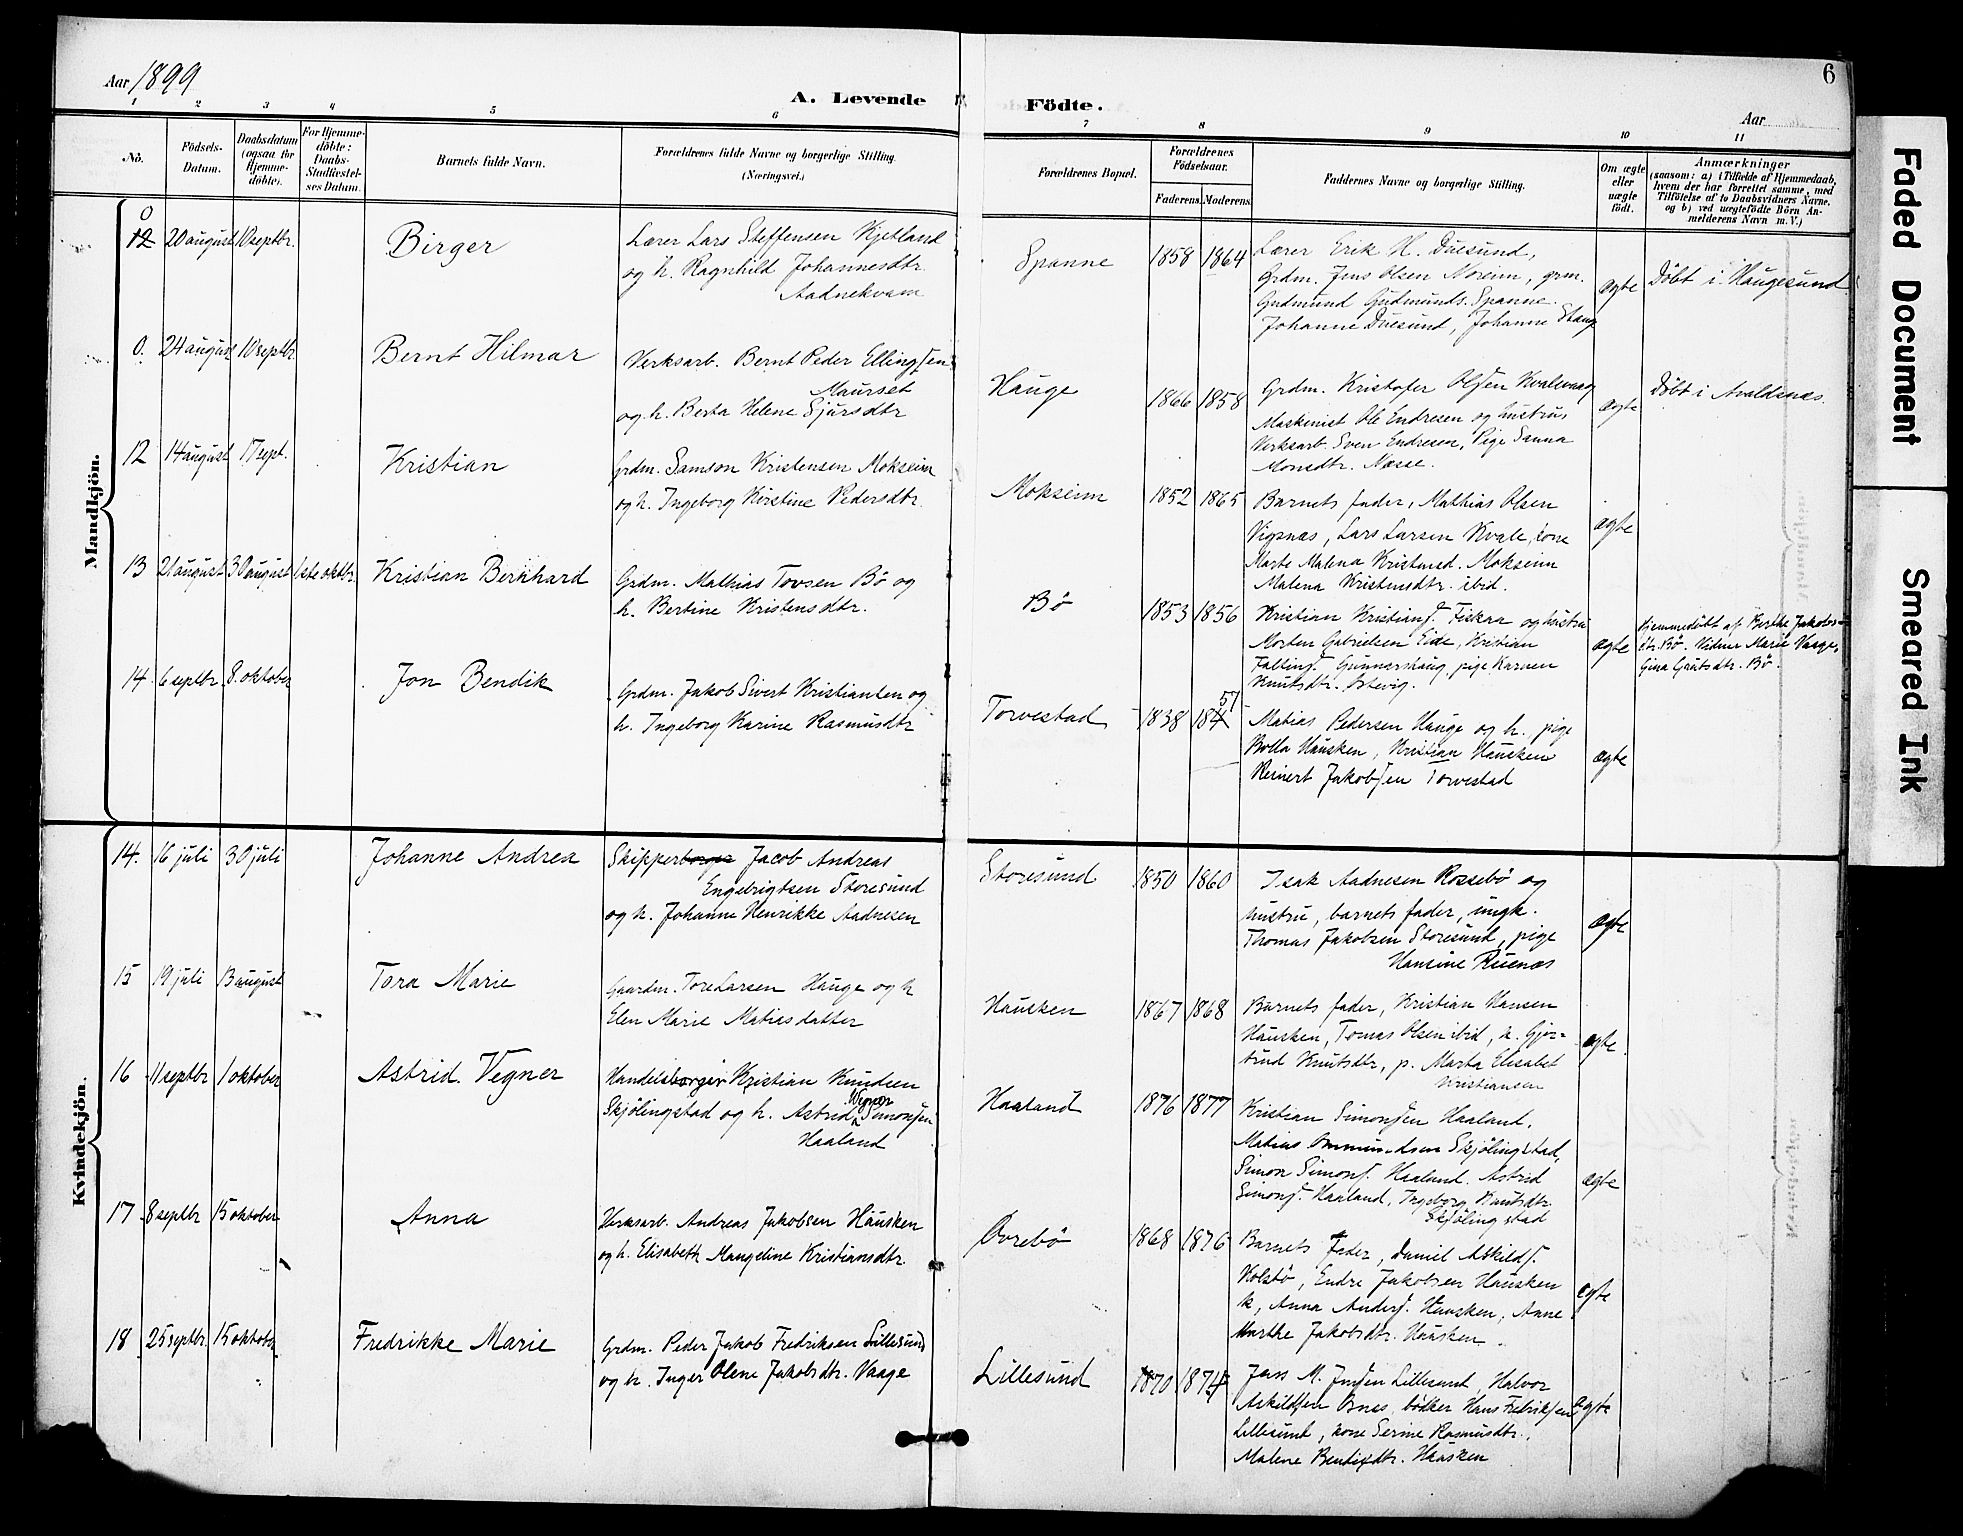 6
Aar 1899
A. Levende
Födte.
Aar
1 2 3 4 5 6 7 8 9 10 11
No.
Födsels-Datum.
Daabsdatum (ogsaa for Hjemme-döbte).
For Hjemme-döbte: Daabs-Stadfæstel-ses Datum.
Barnets fulde Navn.
Forældrenes fulde Navne og borgerlige Stilling.
(Næringsvei.)
Forældrenes Bopæl.
Forældrenes Födselsaar.
Faderens. Moderens.
Faddernes Navne og borgerlige Stilling.
Om ægte eller uægte födt.
Anmærkninger
(saasom: a) i Tilfælde af Hjemmedaab,
hvem der har forrettet samme, med
Tilföielse af to Daabsvidners Navne.
og b) ved uægtefödte Börn An-
melderens Navn m. V.)
Mandkjön.
0
12 20 august 10 septbr. Birger
Lærer Lars Steffensen Kjetland
og h. Ragnhild Johannesdtr.
Aadnekvam
Spanne 1858 1864
Lærer Erik H. Duesund,
Grdm. Jens Olsen Noreim, grm.
Gudmund Gudmunds. Spanne.
Johanne Duesund, Johanne Stang
ægte
Döbt i Haugesund
0. 24 august 10 septbr Bernt Hilmar
Verksarb. Bernt Peder Ellingsen
Maurset
og h. Berta Helene Sjursdtr
Hauge 1866 1858
Grdm. Kristofer Olsen Kvalevaag
Maskinist Ole Endresen og hustru
Verksarb. Sven Endresen, Pige Sanna
Monsdtr. Næsse.
ægte
Döbt i Avaldsnæs.
12 14 august 17 sept. Kristian
Grdm. Samson Kristensen Mokseim
og h. Ingeborg Kirstine Pedersdtr.
Mokseim 1852 1865
Barnets fader, Mathias Olsen
Vigsnæs, Lars Larsen Kvale, kone
Marte Malena Kristensd. Mokseim
Malena Kristensdtr. ibid.
ægte
13 21 august 30 august 1ste oktbr. Kristian Bernhard
Grdm. Mathias Tovsen Bö og
h. Bertine Kristensdtr.
Bö 1853 1856
Kristian Kristians. Fiskaa og hustru
Morten Gabrielsen Eide, Kristian
Gunnarshaug, pige Karen
Knutsdtr. Østevig.
ægte
Hjemmedöbt af Berthe Jakobs-
dtr. Bö. Vidner Marie Vaage,
Gina Gautsdtr. Bö.
14. 6 septbr. 8. oktober Jon Bendik
Grdm. Jakob Sivert Kristiansen og
h. Ingeborg Karine Rasmusdtr
Torvestad 1838 184 51
Matias Pedersen Hauge og h. pige
Bolla Hausken, Kristian Hausken
Reinert Jakobsen Torvestad
ægte
Kvindekjön.
14. 16 juli 30 juli Johanne Andrea
Skipperborger Jacob Andreas
Engebrigtsen Storesund
og h. Johanne Henrikke Aadnesen
Storesund 1850 1860
Isak Aadnesen Rossebö og
hustru, barnets fader, ungk.
Thomas Jakobsen Storesund, pige
Hansine Ruenæs
ægte
15 19 juli 13 august Tora Marie
Gaardm. Tore Larsen Hauge og h
Elen Marie Matiesdatter
Hausken 1867 1868
Barnets fader, Kristian Hansen
Hausken, Tomas Olsen ibid, h. Gjer-
trud Knutsdtr, p. Marta Elisabet
Kristiansen
ægte
16 11 septbr 1 oktober Astrid Vegner
Handelsborger Kristian Knudsen
Skjölingstad og h. Astrid Vegner Simonsen
Haaland
Haaland 1876 1877
Kristian Simonsen Haaland.
Matias Ommundsen Skjölingstad,
Simon Simons. Haaland. Astrid
Simons. Haaland, Ingeborg Knutsdtr
Skjölingstad
ægte
17 8 septbr 15 oktober Anna
Verksarb. Andreas Jakobsen Hausken
og h. Elisabeth Mangeline Kristiansdtr.
Øvrebö 1868 1876
Barnets Fader, Daniel Askilds.
Kolstö, Endre Jakobsen Hausken
k, Anna Anders. Hausken, Anne
Marthe Jakobsdtr. Hausken.
ægte
18 25 septbr. 15 oktober Fredrikke Marie
Grdm. Peder Jakob Fredriksen Lillesund
og h. Inger Olene Jakobsdtr. Vaage
Lillesund 1870 1874
Jens M. Jensen Lillesund, Halvor
Askildsen Ørnes, bödker Hans Fredriksen
Lillesund, kone Serine Rasmusdtr.,
Malene Bendixdtr. Hausken
ægte
Faded Document
Smeared Ink